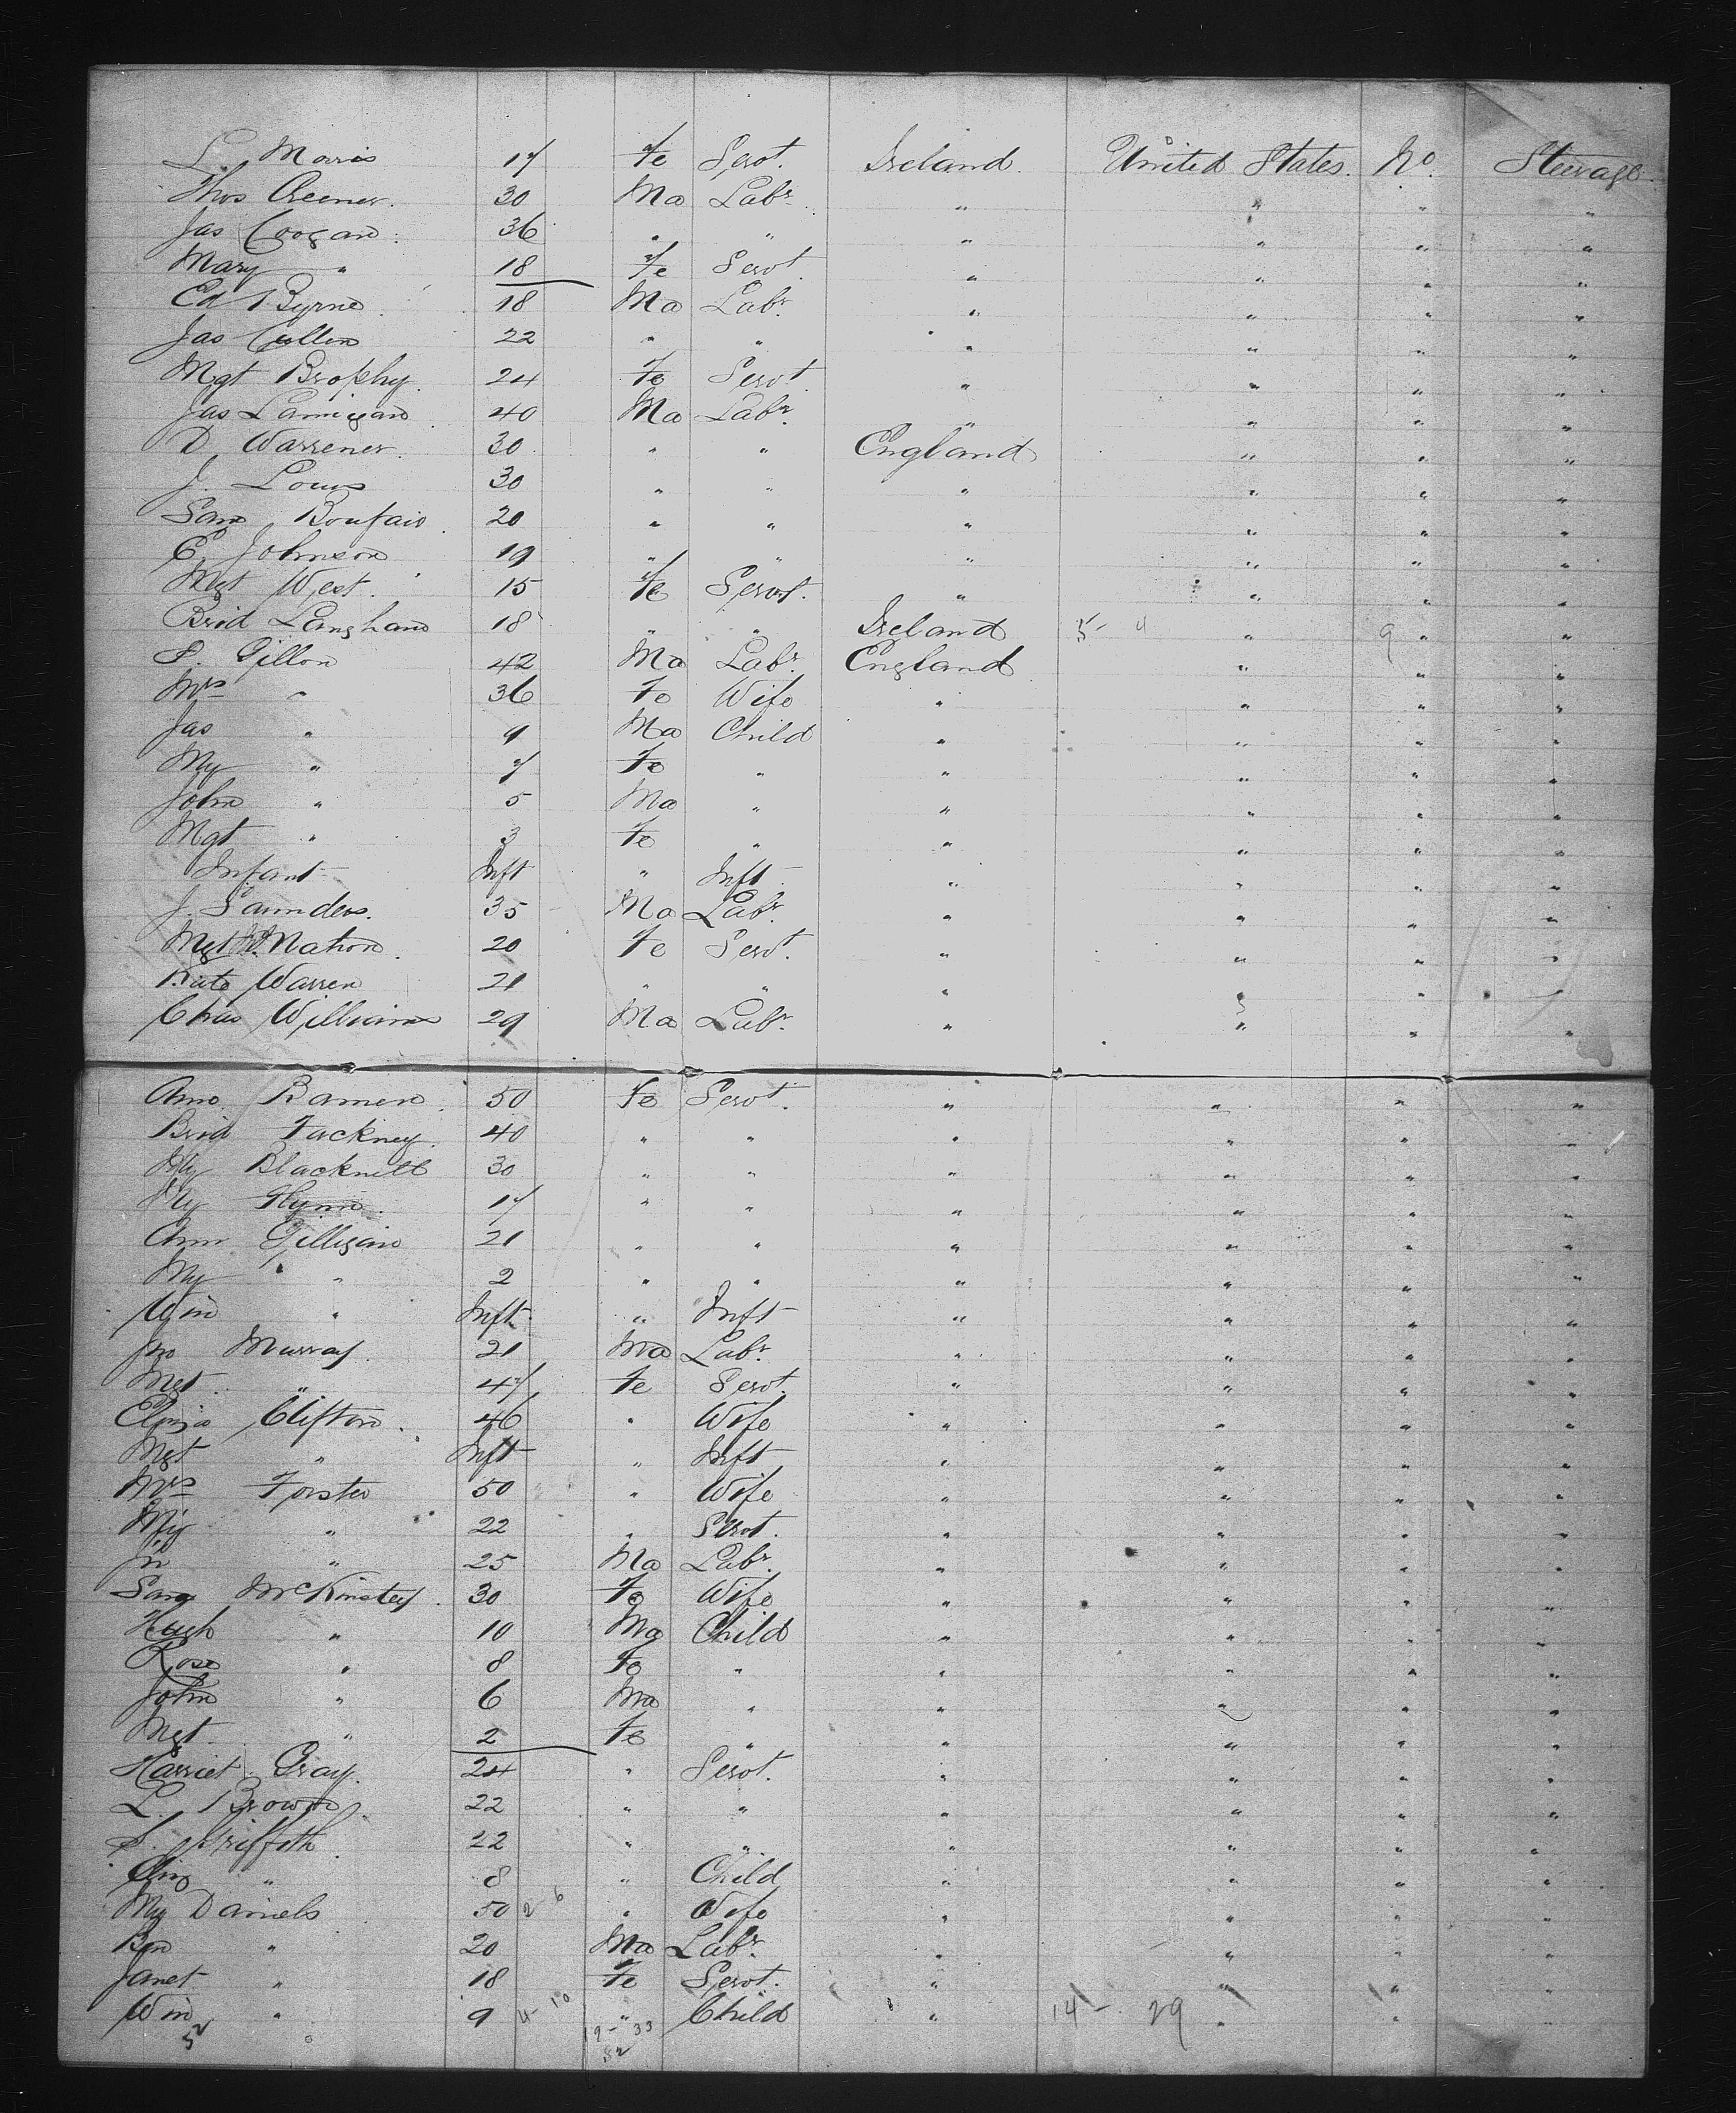 L. Morris 17 Fe Servt. Ireland. United States. No. Steerage.
Thos Greener. 30 Ma Labr. " " " "
Jas Coogan. 36 " " " " " "
Mary " 18 Fe Servt. " " " "
Ed Byrne 18 Ma Labr. " " " "
Jas Cullen 22 " " " " " "
Mgt Brophy. 24 Fe Servt. " " " "
Jas Lannigan 40 Ma Labr. " " " "
D Warrener. 30 " " England " " "
J. Louis 30 " " " " " "
Sam 20 " " " " " "
E. Johnson 19 " " " " " "
Mgt West. 15 Fe Servt. " " " "
Brid Langhan 18 " " Ireland 5- 4 " 9 " "
S. Gillon 42 Ma Labr. England " " "
Mrs " 36 Fe Wife " " " "
Jas " 9 Ma Child " " " "
My " 7 Fe " " " " "
John " 5 Ma " " " " "
Mgt " 3 Fe " " " " "
Infant Inft " Inft " " " "
J. Saunders. 35 Ma Labr. " " " "
Mgt Mc.Mahon. 20 Fe Servt. " " " "
Kate Warren 21 " " " " " "
Chas Williams 29 Ma Labr. " " " "
Ann Bamen. 50 Fe Servt. " " " "
Brid Fackney. 40 " " " " " "
My Blacknell 30 " " " " " "
My Flynn. 17 " " " " " "
Ann Gilligan 21 " " " " " "
My " 2 " " " " " "
Win " Inft " Inft " " " "
Jno Murray. 21 Ma Labr. " " " "
Mgt " 47 Fe Servt. " " " "
Eliza Clifton. 46 " Wife " " " "
Mgt " Inft " Inft " " " "
Mrs Forster 50 " Wife " " " "
My " 22 " Servt. " " " "
Jn " 25 Ma Labr. " " " "
Sara McKinstey. 30 Fe Wife " " " "
Hugh " 10 Ma Child " " " "
Rose " 8 Fe " " " " "
John " 6 Ma " " " " "
Mgt " 2 Fe " " " " "
Harriet Gray. 24 " Servt. " " " "
L. Brown. 22 " " " " " "
S. Griffith. 22 " " " " " "
" 8 " Child " " " "
My Daniels 50 2-6 " Wife " " " "
Ben " 20 Ma Labr. " " " "
Janet " 18 Fe Servt. " " " "
Win " 9 4-10 " Child " 14- 29 " " "
52 19-33
52